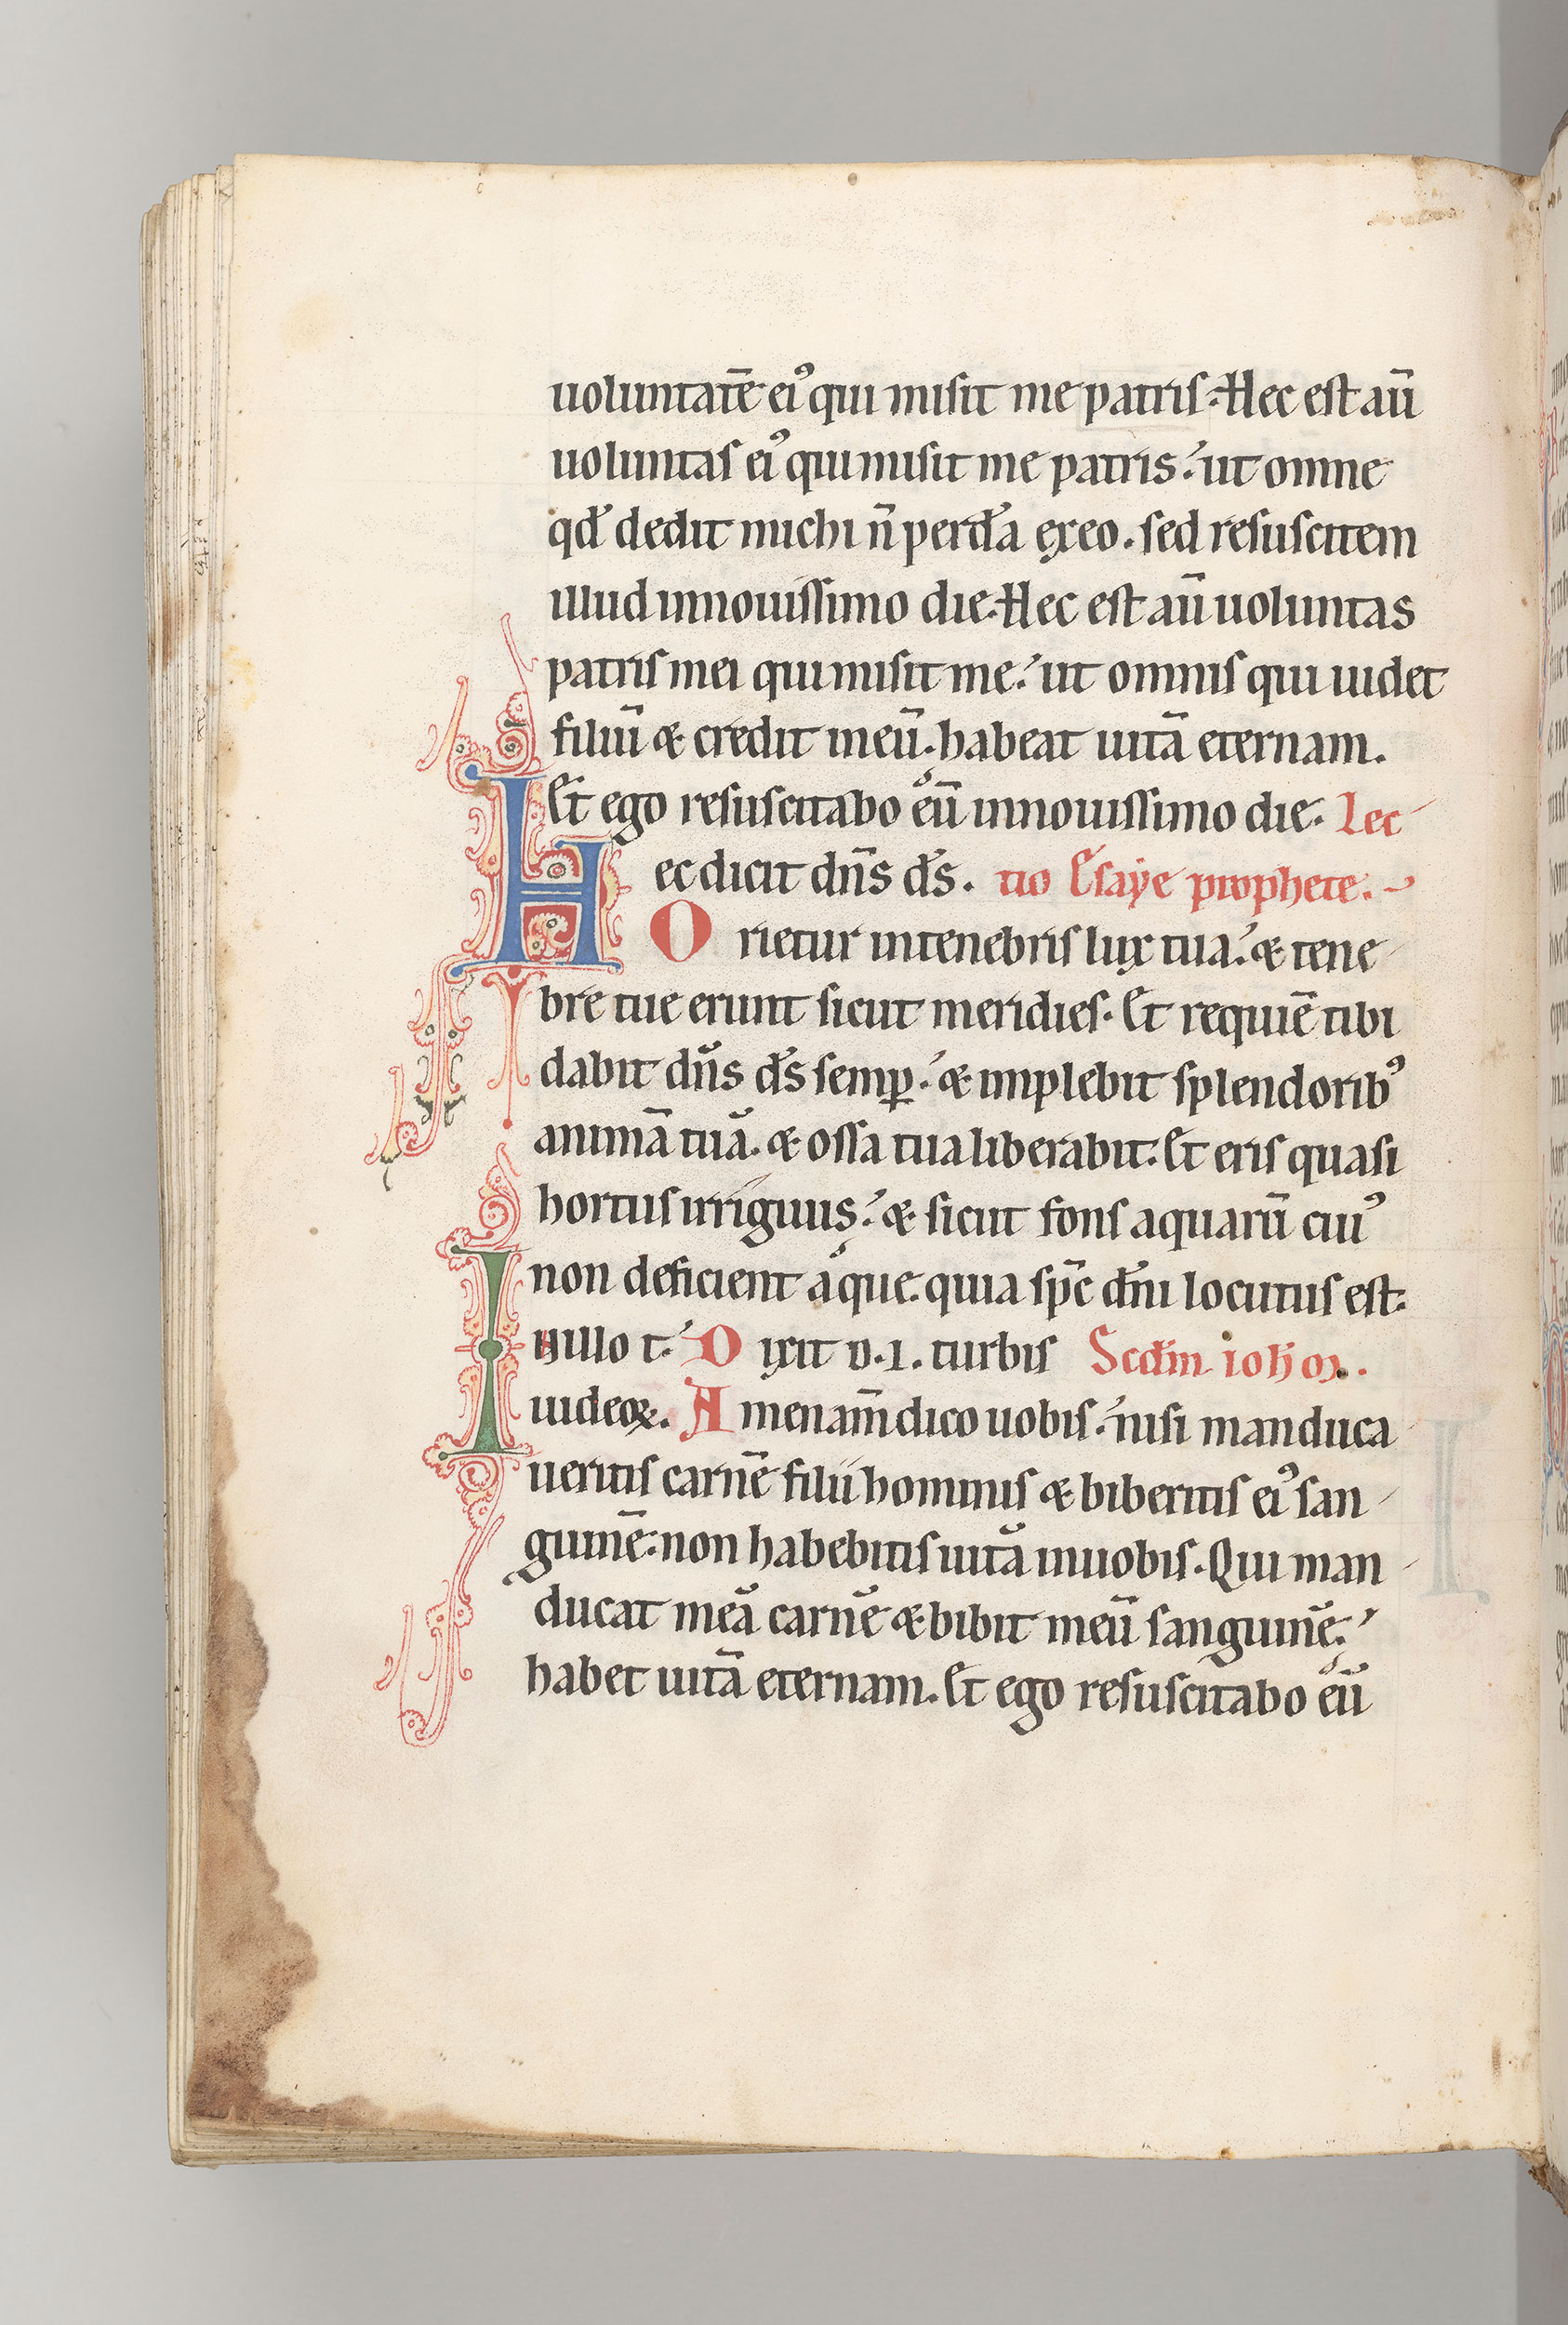 uoluntatē ei᾽ qui misit me patris. Hec est aū
uoluntas ei᾽ qui misit me patris. ut omne
qd̄ dedit michi n̄ perdā exeo. sed resuscitem
illud innouissimo die. Hec est aū uoluntas
patris mei qui misit me. ut omnis qui uidet
filiū & credit ineū. habeat uitā eternam.
Et ego resuscitabo eū innouissimo die. Lec
Hec dicit dn̄s ds̄. tio Esaye prophete.
Orietur intenebris lux tua. & tene
bre tue erunt sicut meridies. Et requiē tibi
dabit dn̄s ds̄ semꝑ. & implebit splendorib᾽
animā tuā. & ossa tua liberabit. Et eris quasi
hortus irriguus. & sicut fons aquarū cui᾽
non deficient aque. quia sp̄c dn̄i locutus est.
Inillo t. Dixit d. I. turbis Scdm̄ ioh̄
iudeoꝝ. Amenam̄ dico uobis. nisi manduca
ueritis carnē filii hominis & biberitis ei᾽ san
guinē. non habebitis uitā inuobis. Qui man
ducat meā carnē & bibit meū sanguinē.
habet uitā eternam. Et ego resuscitabo eū